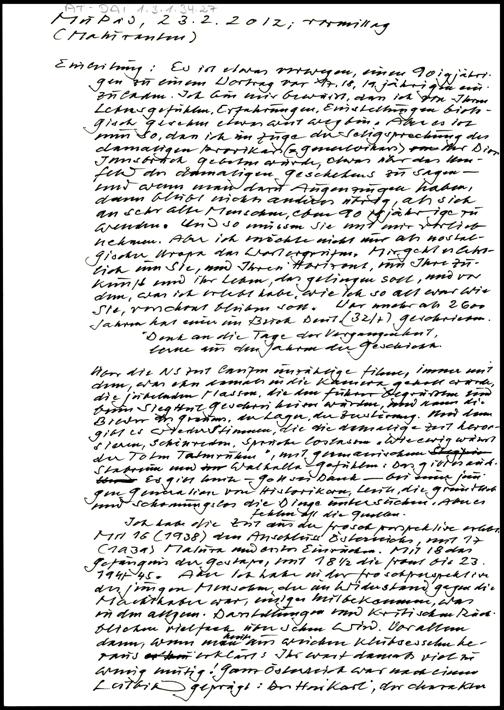 AT-DAI 1.3.1.34.27
MuPäd, 23.2.2012; vormittag
(Maturanten)
Einleitung: Es ist etwas verwegen, einen 90 jährigen
zu einem Vortrag vor 17, 18, 19 jährigen ein
zuladen. Ich bin mir bewusst, dass ich von Ihren
Lebensgefühlen, Erfahrungen, Einstellungen
gisch gesehen etwas weit weg bin. Aber es ist
nun so, dass ich im Zuge der Seligsprechung des
damaligen Provikars (Generalvikars) Ihr Diöz.
Innsbruck gebeten wurde, etwas über das Um-
feld des damaligen Geschehens zu sagen -
und wenn man dazu Augenzeugen haben,
dann bleibt nichts anderes übrig, als sich
an sehr alte Menschen, eben 90 jährige zu
wenden. Und so müssen Sie mit mir vorlieb
nehmen. Aber ich möchte nicht nur als nostal-
gischer Uropa das Wort ergreifen. Mir geht es letzt-
lich um Sie, und Ihren Horizont, um Ihre Zu-
kunft und ihr Leben, das gelingen soll, und vor
dem, was ich erlebt habe, wie ich so alt war wie
Sie, verschont bleiben soll. Vor mehr als 2600
Jahren hat einer im Buch Deut (32/7) geschrieben.
"Denk an die Tage der Vergangenheit,
lerne aus den Jahren der Geschichte.
Über die NS Zeit laufen unzählige Filme, immer mit
dem, was eben damals in die Kamera geholt wurde,
die jubelnden Massen, die den Führer begrüssten und
beim Sieg Heil Geschrei heiser wurden, und dann die
Bilder des Grauens, der Lager, der Zerstörung. Und dann
gibt es Stimmen, die die damalige Zeit heroi-
sieren, Schönreden, Sprüche loslassen: Wie ewig währt
der Toten Tatenruhm", mit germanischem
und Walhalla-Gefühlen:
Es gibt heute - Gott sei Dank - bei jun
gen Generation von Historikern, Leute, die gründlich
und schonungslos die Dinge untersuchen. Aber es
die Quellen.
Ich habe die Zeit aus der Froschperspektive erlebt.
Mit 16 (1938) den Anschluss Österreichs, mit 17
(1939) Matura und erstes Einrücken. Mit 18 das
Gefängnis der Gestapo, mit 18 1/2 die Front bis 23.
1941-45. Aber ich habe in der Froschperspektive
des jungen Menschen, der im Widerstand gegen die
Machthaber war, einiges mitbekommen, was
in den allgem. Darstellungen und kritischen Rück-
blicken vielfach übersehen wird. Vor allem
dann, wenn man heute aus weichen Klubsesseln he-
raus erklärt: Ihr wart damals viel zu
wenig mutig! Ganz Österreich war nach einem
Leitbild geprägt: Der Herr Karl, der charakter